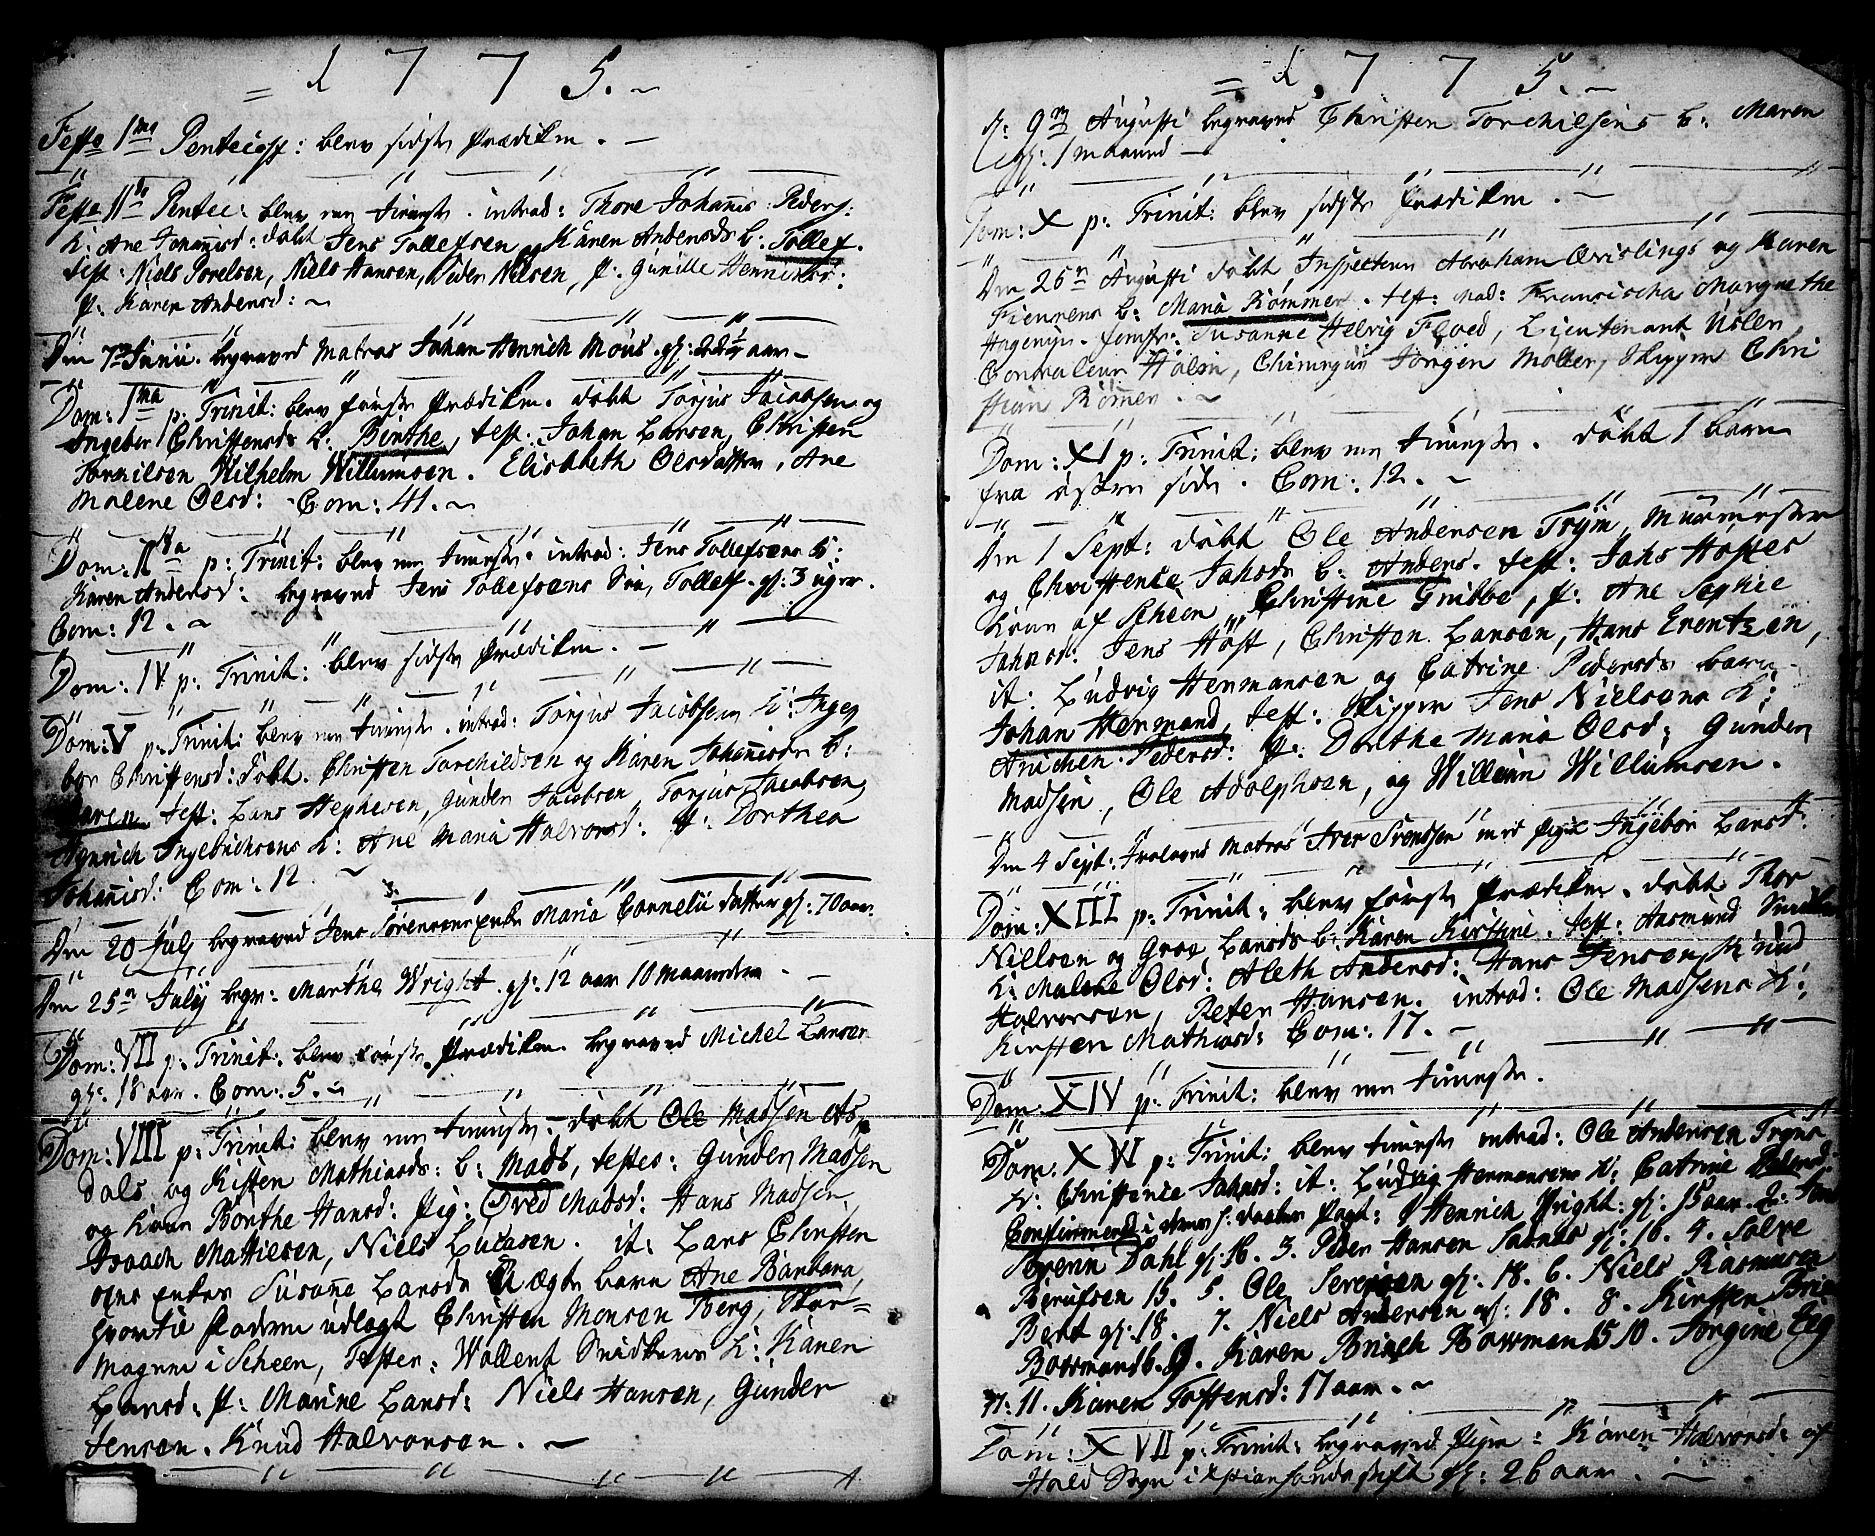 = 1 7 7 5. ~
Festo 1ma Pentecost: blev sidste Prædiken. —
Festo IIda Pentec: blev ren tieneste. introd: Thore Johanis Peders:
K: Ane Johanisd: døbt Jens Tollefsen og Karen Andersds b: Tollef.
test: Niels Porelsen, Niels Hansen, Peder Nilsen, p: Gunille Henricks:
p: Karen Andersd: ~
Den 7de Junii begraved Matros Johan Henrich Moüs gl: aar —
Dom: 1ma p: Trinit: blev første Prædiken. døbt Torjus Jacobsen og
Ingebor Christensds b: Birthe, test: Johan Larsen, Christen
Torchilsen Wilhelm Willumsen. Elisabeth Olsdatter, Ane
Malene Olsd: Com: 41. ~
Dom: II p: Trinit: blev ren tieneste. introd: Jens Tollefsens K:
Karen Andersd: begraved Jens Tollefsens Søn, Tollef gl: 3 uger.
Com: 12. ~
Dom: IV p: Trinit: blev sidste Prædiken. —
Dom: V p: Trinit: blev ren tieneste. introd: Torjus Jacobsens K: Inge
bor Christensd: døbt. Christen Torchildsen og Karen Johanisds b:
Maren test: Lars Stephesen, Gunder Jacobsen, Torjus Jacobsen,
Henrich Ingebrichsens K: Ane Maria Halvorsd: p: Dorthea
Johanisd: Com: 12 ~
Den 20 July begraved Jens Sørensens Enke Maria Cornelii datter gl: 70 aar.
Den 25n July begr: Marthe Wright gl: 12 aar 10 maaneder. —
Dom: VII p: Trinit: blev første Prædiken begraved Michel Larsen
gl: 18 aar. Com: 5. ~
Dom: VIII p: Trinit: blev ren tieneste. døbt Ole Madsen As
dals og Kisten Mathiasds: b: Mads, testes: Gunder Madsen
og kone Borthe Hansd: Pig: Øved Madsd: Hans Madsen,
Isaach Mathiesen, Niels Lucasen. it: Lars Christen
sens enkes Susanne Larsds U ægte barn Ane Barbara,
hvortil Faderen udlagt Christen Monsen Berg, Skor=
mager i Scheen, Tester: Wollert Snidkers K: Karen
Larsd: p: Marine Larsd: Niels Hansen, Gunder
Jensen. Knud Halvorsen. ~
= 1 7 7 5. ~
d: 9n Augusti begraved Christen Torchilsens b: Maren
gl: 1 maaned —
Dom: X p: Trinit: blev sidste Prædiken. ~
Den 26n Augusti døbt Inspecteur Abraham Qvislings og Karen
b: Maria Rømmer. test: Mad: Francischa Margrethe
Susanne Helvig Floed, Lieutenant Uslen,
Contraleur Holm, Chirurgus Jørgen Møller, Skipper Chri
stian Rømer. ~
Dom: XI p: Trinit: blev ren tieneste. døbt 1 barn
fra østre side. Com: 12. ~
Den 1 Sept: døbt Ole Andersen Trym, Muurmester
og Christence Jahsds b: Anders. test: Jahs Hostes
kone af Scheen, Christine Gribbe, p: Ane Sophie
Jahnsd: Jens Høst, Christen Larsen, Hans Erentzen,
it: Ludvig Hermansen og Catrine Pedersds barn
Johan Hermand, test: Skipper Jens Nielsens K:
Anichen Pedersd: p: Dorthe Maria Olsd: Gunder
Madsen, Ole Adolphsen, og Willum Willumsen.
Den 4 Sept: Trolovet Matros Iver Svendsen med Pige Ingebor Larsd:
Dom: XIII p: Trinit: blev første Prædiken. døbt Thor
Nielsen og Groe Larsds b: Karen Kirstine. test: Aasmund
K: Malene Olsd: Aleth Andersd: Hans Jensen, Knud
Halvorsen, Peter Hansen. introd: Ole Madsens K:
Kirsten Mathiasd: Com: 17. —
Dom: XIV p: Trinit: blev ren tieneste.
Dom: XVI p: Trinit: blev tieneste introd: Ole Andersen Tryms
K: Christence Jahnsd: it: Ludvig Hermansens K: Catrine Pedersd:
Confirmered i deres h: daabes Pagt: 1 Henrich Wright: gl: 15 aar. 2: Jens
Brenn Dahl gl: 16. 3. Peder Hansen gl: 16. 4. Salve
Berulfsen 15. 5. Ole Severisen gl: 18. 6. Niels Rasmusen
Bert gl: 18. 7. Niels Andersen gl: 18. 8. Kirsten
9. Karen Brinch Borsman 15 10. Jørgine
n: 11. Karen Tostensd: 17 aar. ~
Dom: XVII p: Trinit: begraved Pigen: Karen Halvorsd: af
Hald Sogn i Xstiansands stift gl: 26 aar. ~